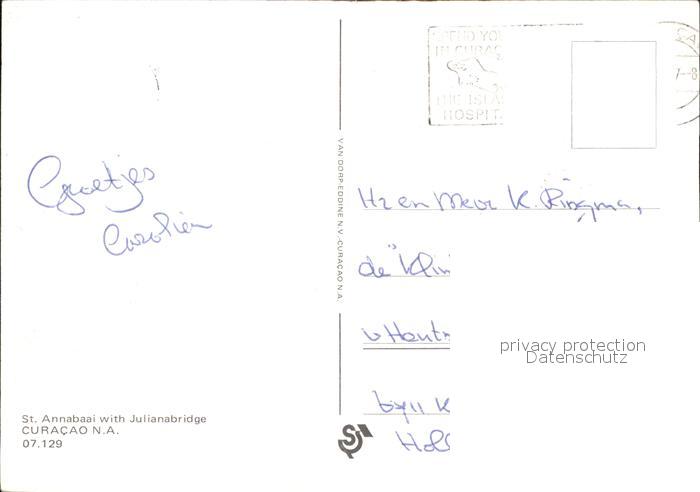 Groetjes
Carolien
St. Annabaai with Julianabridge
CURAÇAO N.A.
07.129
VAN DORP-EDDINE N.V.-CURAÇAO N.A.
SPEND YOU
IN CURAÇ
THE ISLA
HOSPIT
7-8
Hr en Mevr K. Ringma,
de Klin
privacy protection
Datenschutz